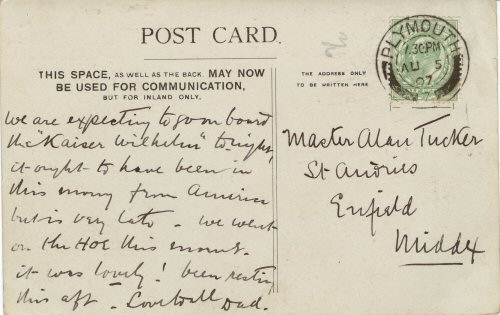 POST CARD.
THIS SPACE, AS WELL AS THE BACK, MAY NOW
BE USED FOR COMMUNICATION,
BUT FOR INLAND ONLY.
THE ADDRESS ONLY
TO BE WRITTEN HERE
PLYMOUTH
7.30 PM
AU 5
07
We are expecting to go on board
the "Kaiser Wilhelm" tonight,
it ought to have been in
this morng from America
but is very late - we went
on the Hoe this morng.
it was lovely! been resting
this aft - Love to all Dad.
Master Alan Tucker
St Andries
Enfield
Middx